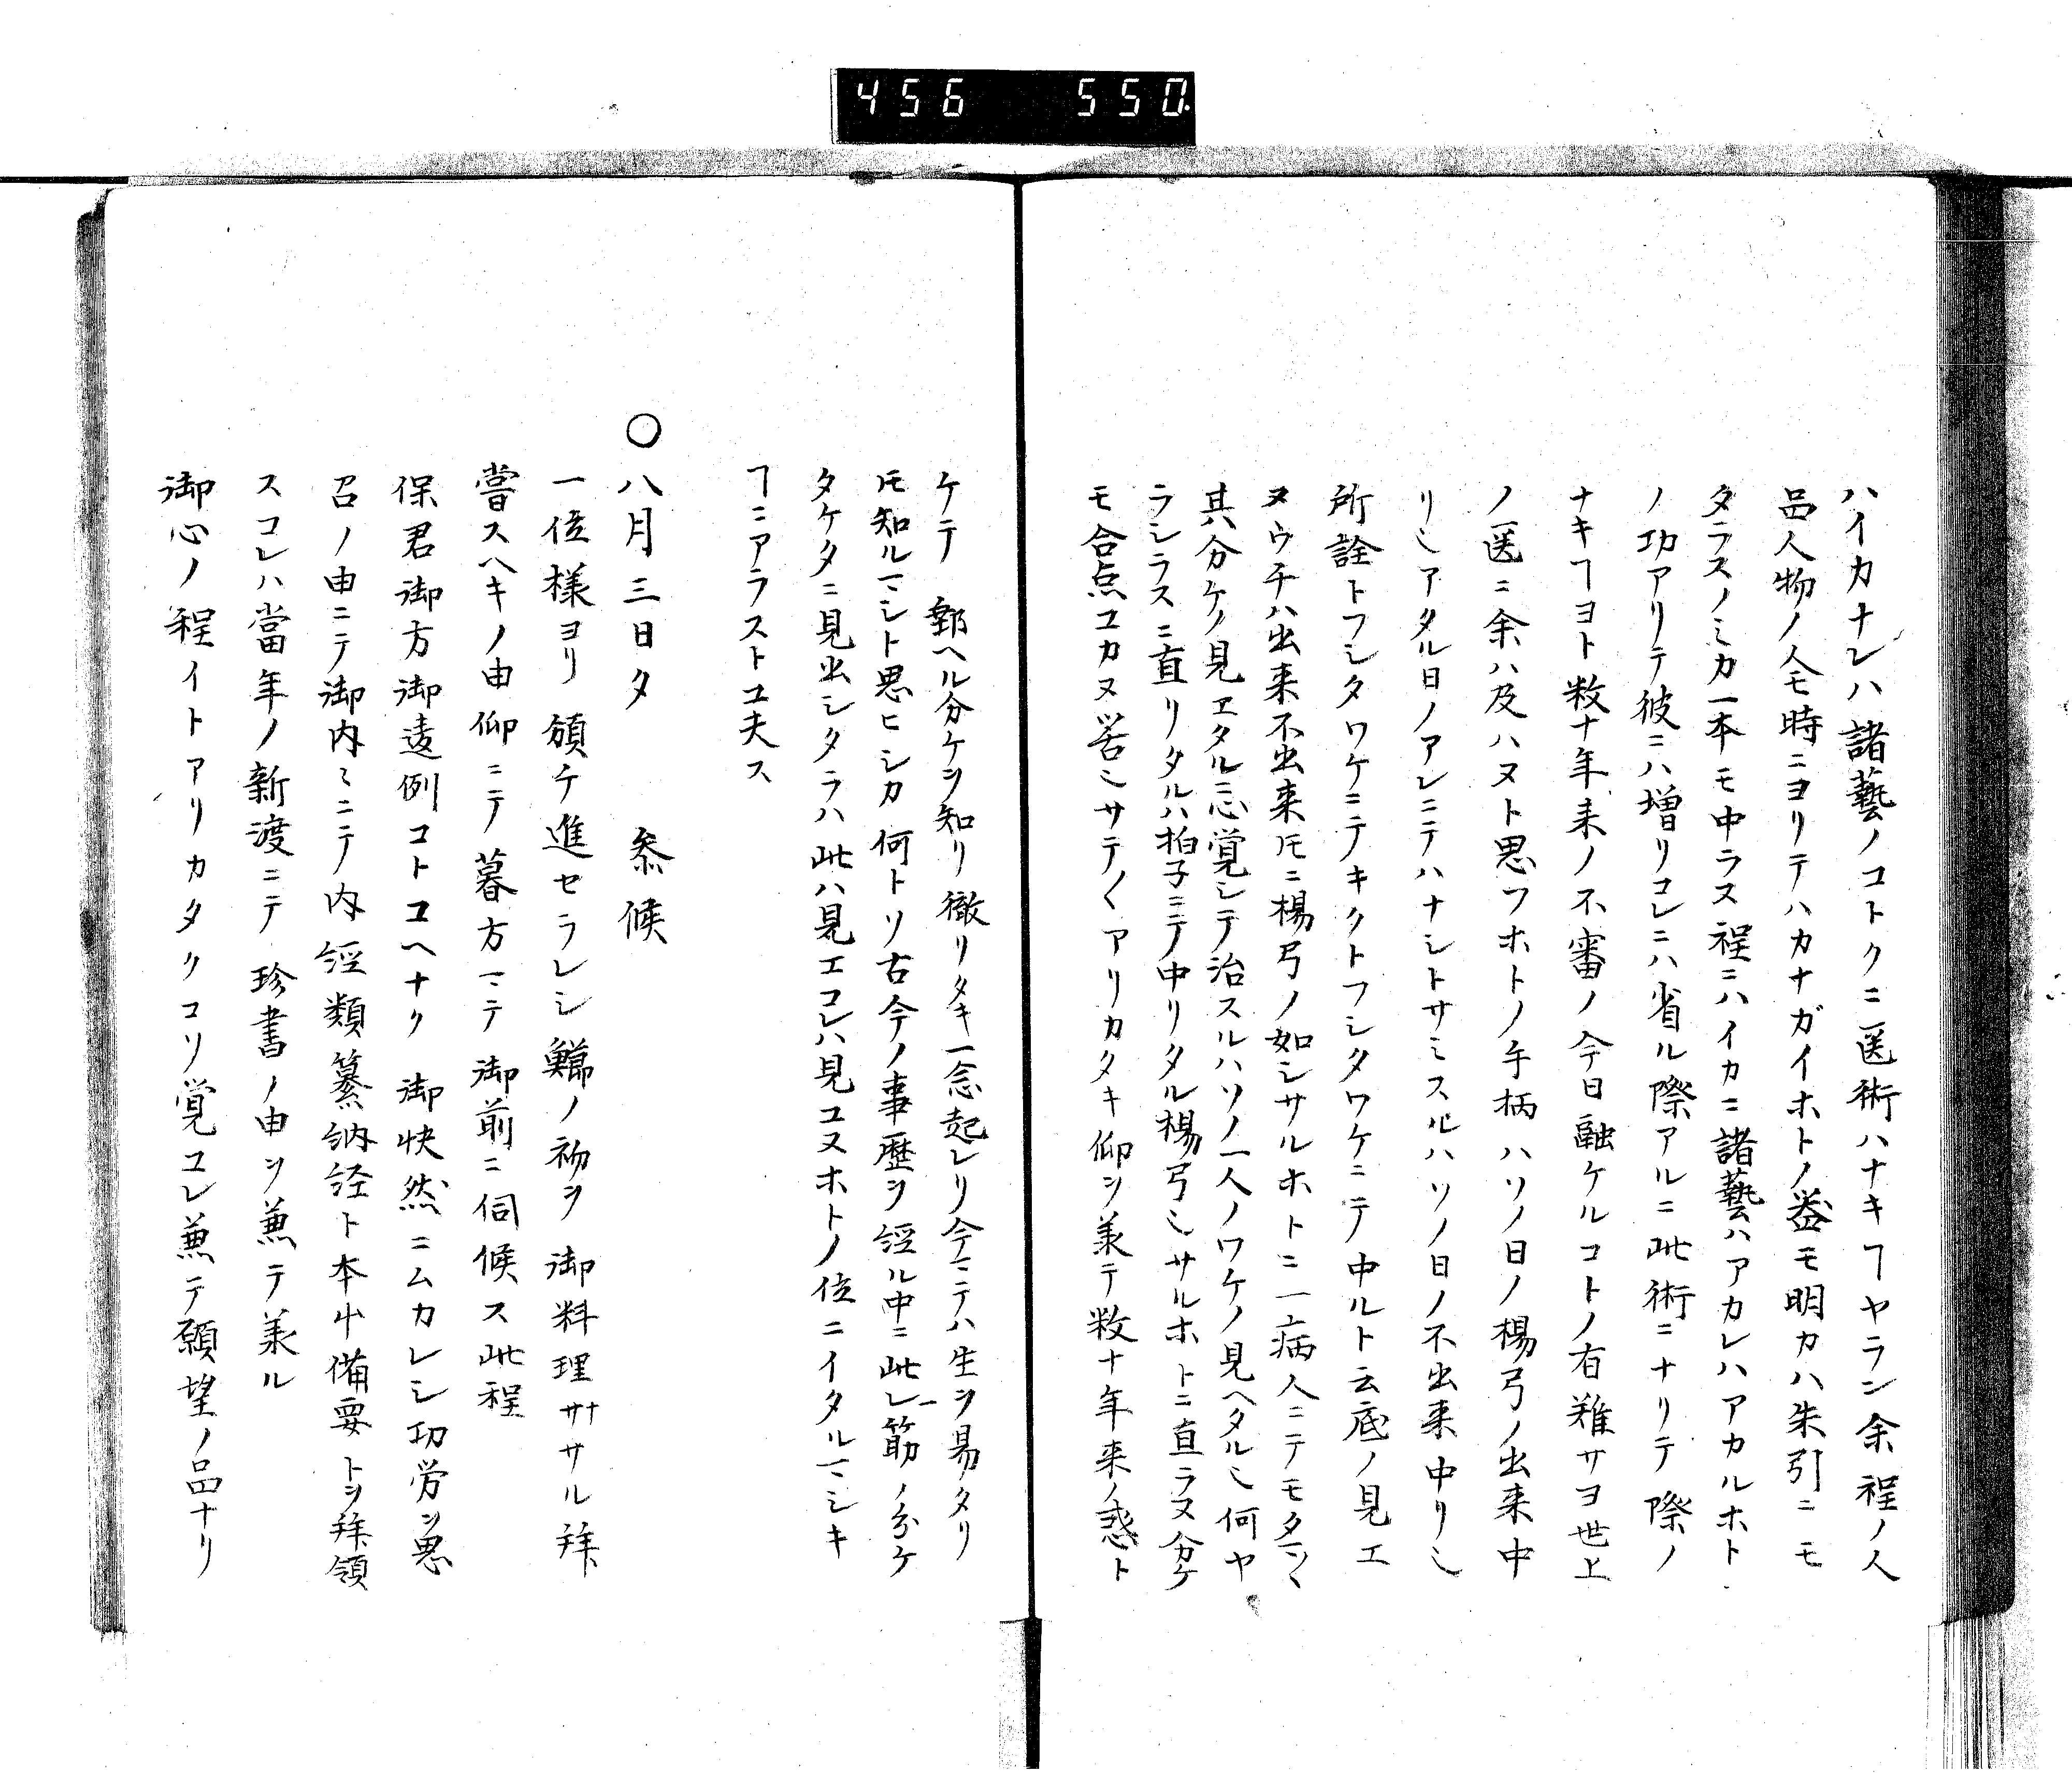 456 550
ハイカナレハ諸藝ノコトクニ医術ハナキヿヤラン余程ノ人
品人物ノ人モ時ニヨリテハカナガイホトノ益モ明カハ朱引ニモ
タラスノミカ一本モ中ラス程ニハイカニ諸藝ハアカレハアカルホト
ノ功アリテ彼ニハ増リコレニハ省ル際アルニ此術ニナリテ際ノ
ナキヿヨト数十年来ノ不審ノ今日融ケルコトノ有難サヨ世上
ノ医ニ余ハ及ハヌト思フホトノ手柄ハソノ日ノ楊弓ノ出来中
リ也アタル日ノアレニテハナシトサミスルハソノ日ノ不出来中リ也
所詮トフシタワケニテキクトフシタワケニテ中ルト云底ノ見エ
ヌウチハ出来不出来𪜈ニ楊弓ノ如シサルホトニ一病人ニテモタマ〻
其分ケノ見ヱタルニ心覚シテ治スルハソノ一人ノワケノ見ヘタル也何ヤ
ラシラスニ直リタルハ拍子ニテ中リタル楊弓也サルホトニ直ラヌ分ケ
モ合点ユカヌ筈也サテ〱アリカタキ仰ヲ羕テ数十年来ノ惑ト
ケテ鄞ヘル分ケヲ知リ徹リタキ一念起レリ今マテハ生ヲ易タリ
𪜈知ルマシト思ヒシカ何トソ古今ノ事歴ヲ經ル中ニ此レ一筋ノ分ケ
タケタニ見出シタラハ此ハ見エコレハ見ユヌホトノ位ニイタルマシキ
ヿニアラストユ夫ス
○八月三日夕 参候
一位様ヨリ頒チ進セラレシ鱛ノ初ヲ御料理サナサル拜
嘗スヘキノ由仰ニテ暮方マテ御前ニ伺候ス此程
保君御方御違例コトユヘナク御快然ニムカレシ功労ヲ思
召ノ由ニテ御内〻ニテ内經類纂訥経ト本艸備要トヲ拜領
スコレハ當年ノ新渡ニテ珍書ノ由ヲ兼テ羕ル
御心ノ程イトアリカタクコソ覚ユレ兼テ願望ノ品ナリ